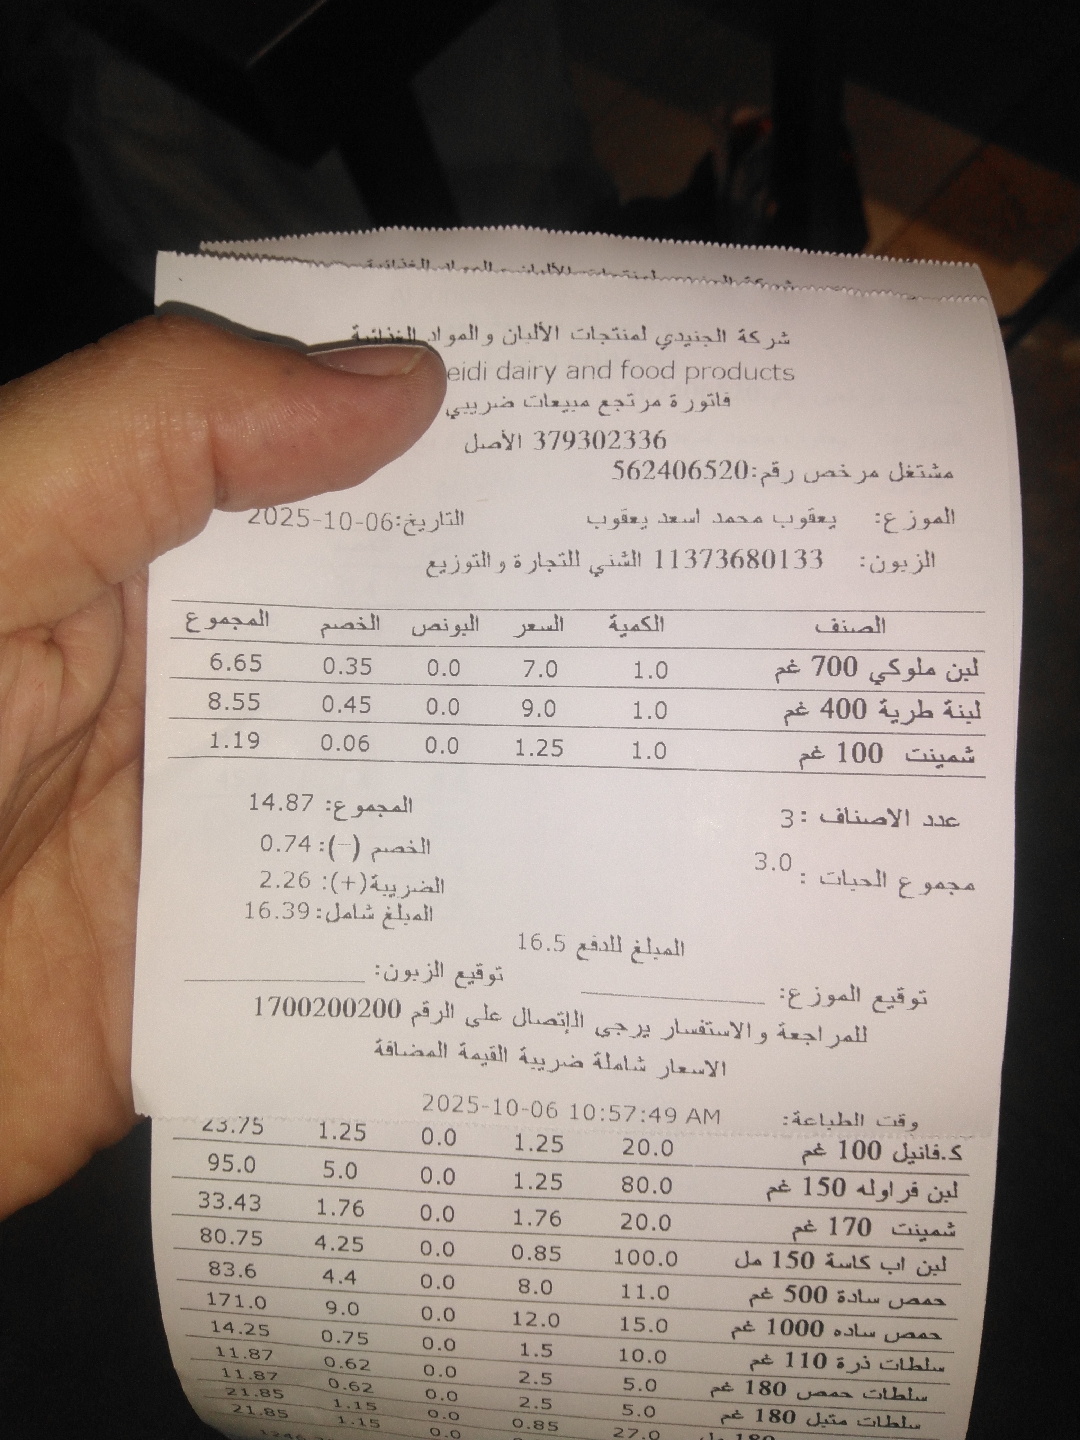 شركة الجنيدي لمنتجات الألبان والمواد الغذائية
شركة الجنيدي لمنتجات الألبان والمواد الغذائية
eidi dairy and food products
فاتورة مرتجع مبيعات ضريبي
379302336 الأصل
مشتغل مرخص رقم:562406520
الموزع: يعقوب محمد اسعد يعقوب التاريخ:2025-10-06
الزبون: 11373680133 الشني للتجارة والتوزيع
الصنف الكمية السعر البونص الخصم المجموع
لبن ملوكي 700 غم 1.0 7.0 0.0 0.35 6.65
لبنة طرية 400 غم 1.0 9.0 0.0 0.45 8.55
شمينت 100 غم 1.0 1.25 0.0 0.06 1.19
عدد الاصناف :3 المجموع: 14.87
الخصم (-): 0.74
مجموع الحبات : 3.0 الضريبة(+): 2.26
المبلغ شامل: 16.39
المبلغ للدفع 16.5
توقيع الموزع: توقيع الزبون:
للمراجعة والاستفسار يرجى الإتصال على الرقم 1700200200
الاسعار شاملة ضريبة القيمة المضافة
وقت الطباعة: 2025-10-06 10:57:49 AM
ك.فانيل 100 غم 20.0 1.25 0.0 1.25 23.75
لبن فراوله 150 غم 80.0 1.25 0.0 5.0 95.0
شمينت 170 غم 20.0 1.76 0.0 1.76 33.43
لبن اب كاسة 150 مل 100.0 0.85 0.0 4.25 80.75
حمص سادة 500 غم 11.0 8.0 0.0 4.4 83.6
حمص ساده 1000 غم 15.0 12.0 0.0 9.0 171.0
سلطات ذرة 110 غم 10.0 1.5 0.0 0.75 14.25
سلطات حمص 180 غم 5.0 2.5 0.0 0.62 11.87
سلطات متبل 180 غم 5.0 2.5 0.0 0.62 11.87
180 مل 27.0 0.85 0.0 1.15 21.85
0.0 1.15 21.85